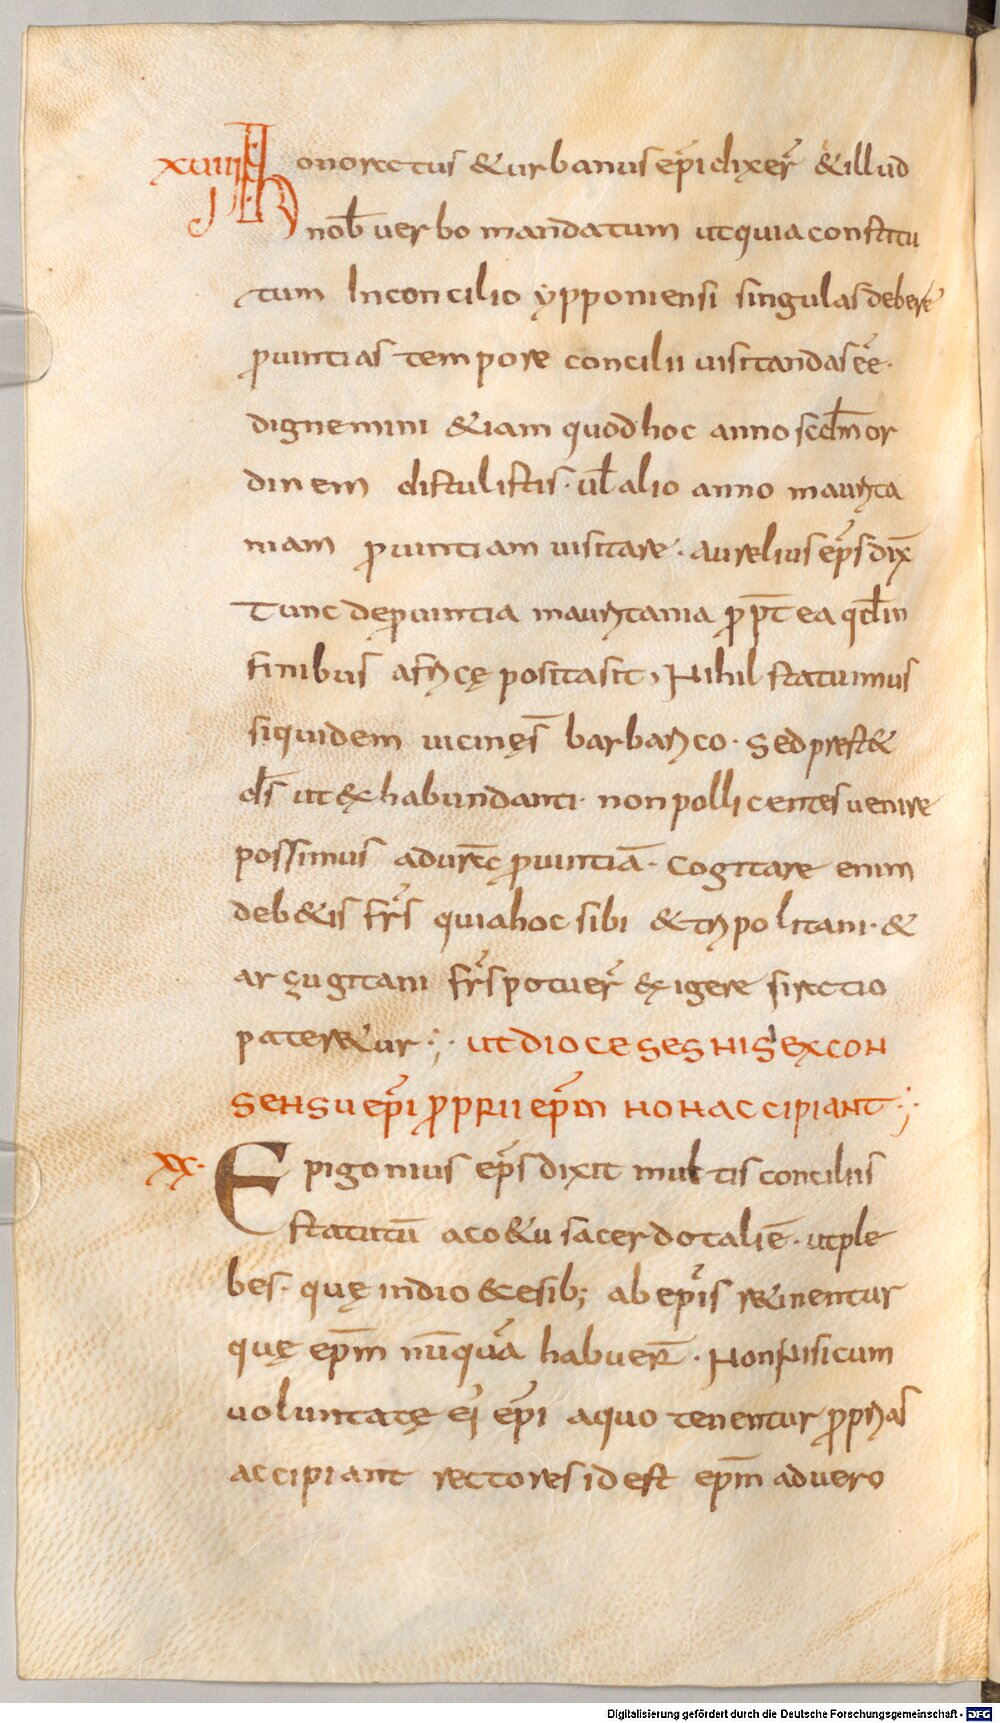 xuiiii Honorectus & urbanus epi dixer̃ & illud
nob̄ uerbo mandatum ut quia constitu
tum In concilio ypponiensi singulas debere
ꝓuintias tempore concilii uisitandas eẽ·
dignemini &iam quod hoc anno scd̄m or
dinem distulistis· ul̄ alio anno maurita
niam ꝓuintiam uisitare· aurelius ep̄s dix̄
Tunc de ꝓuintia mauritania ꝓpt̄ea qd̄ in
finibus africę posita sit, Nihil statuimus
siquidem uicinę s̄ barbarico· sed prest&
d̄s ut ex habundanti· non pollicentes uenire
possimus ad urēc ꝓuintiā· Cogitare enim
deb&is fr̃s quia hoc sibi & tripolitani· &
arçugitani fr̃s potuer̃ exigere si rectio
pater&ur :,· ut dioceses nisi ex con
sensu epi ꝓprii ep̄m non accipiant :,
xx· Epigonius ep̄s dixit multis conciliis
statutū a co&u sacerdotali ē· ut ple
bes· quę in dioc&esib; ab ep̃is r&inentur
quę ep̄m nūquā habuer̄· Non Nisi cum
uoluntatę ei epi a quo tenentur ꝓprias
accipiant rectores id est ep̄m ad uero
Digitalisierung gefördert durch die Deutsche Forschungsgemeinschaft - DFG